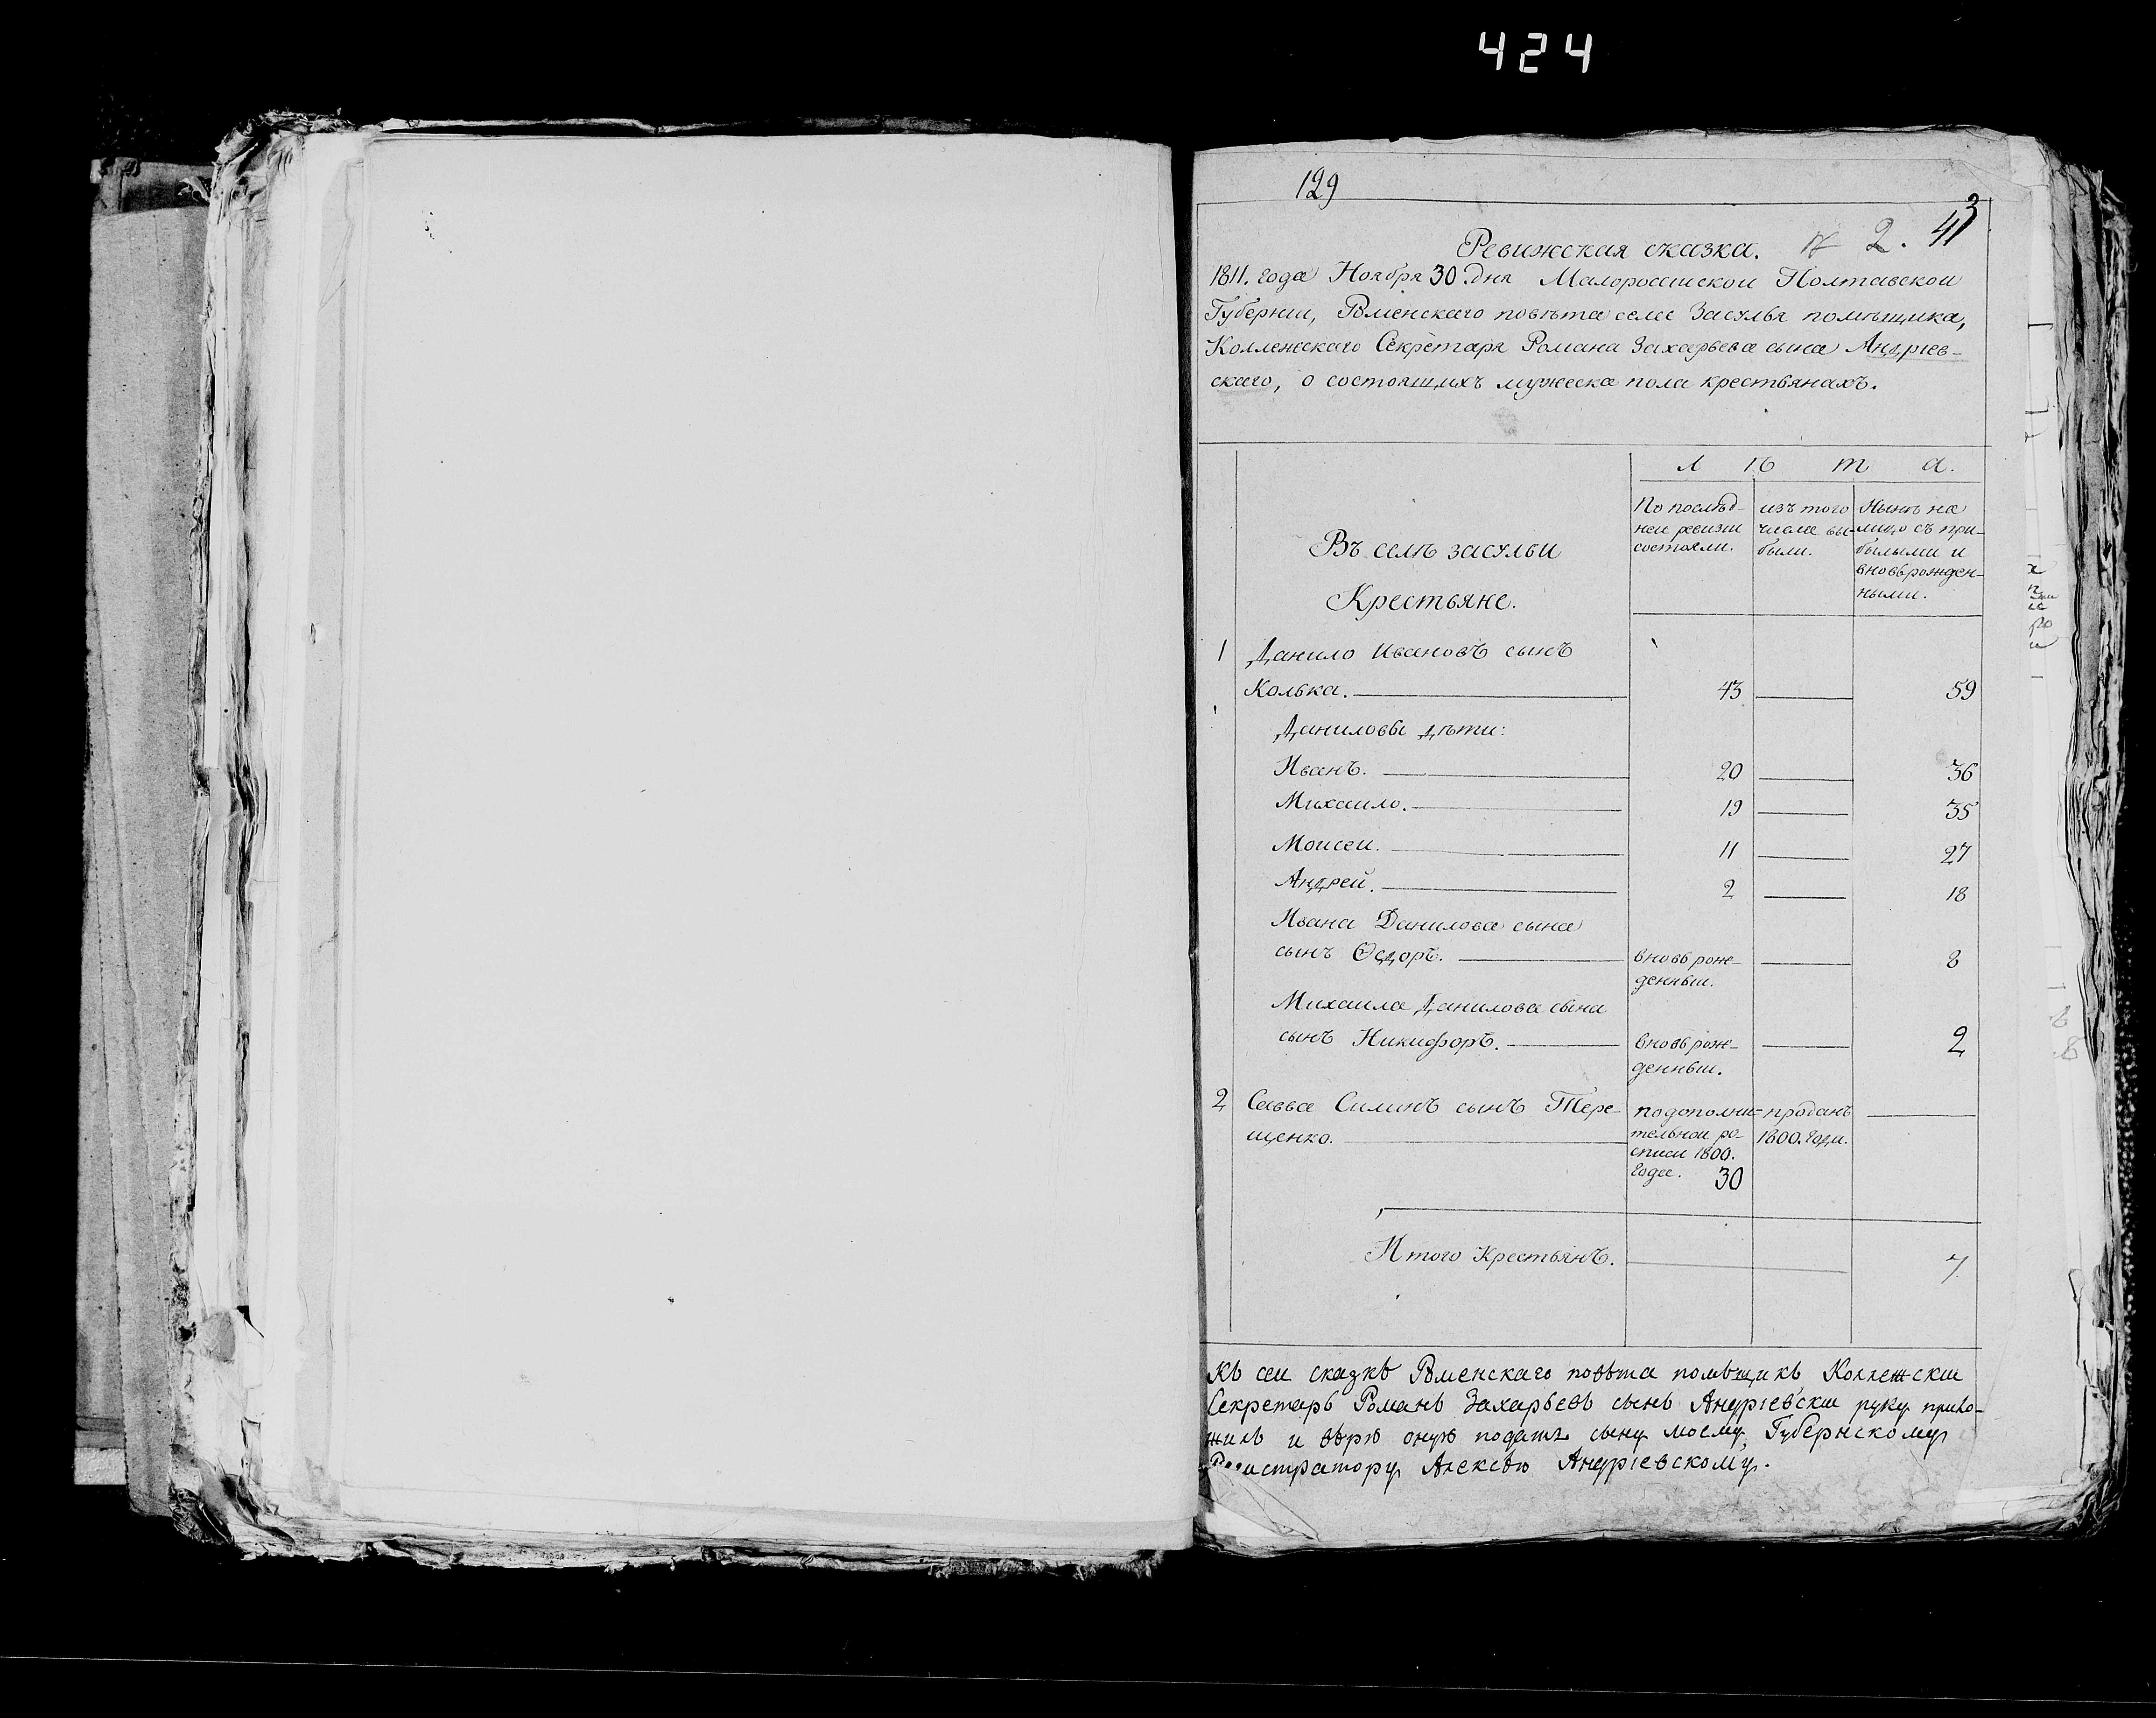 424
129
43
Ревижская сказка. № 2.
1811. года Ноября 30. дня Малоросииской Полтавской
Губернии, Роменскаго повѣта села Засулья помѣщика,
Коллежскаго Секретаря Романа Захарьева сына Андріев-
скаго, о состоящихъ мужеска пола крестьянахъ.
Л ѣ т а.
По послѣд- изъ того Нынѣ на
неи ревизіи числа вы- лицо съ при-
состояли. были. былыми и
вновьрожден-
ными.
Въ селѣ засульи
Крестьяне.
1 Данило Ивановъ сынъ
Колька. 43 59
Даниловы дѣти:
Иванъ. 20 36
Михаило. 19 35
Моисеи. 11 27
Андрей. 2 18
Ивана Данилова сына
сынъ Ѳедоръ. вновь рож- 8
денныи.
Михаила Данилова сына
сынъ Никифоръ. вновь рож- 2
денныи.
2 Савва Силинъ сынъ Тере- по дополни- проданъ
щенко. тельной ро- 1800. года.
списи 1800.
года. 30
Итого Крестьянъ. 7
Къ сеи сказкѣ Роменскаго повѣта помѣщикъ Коллежскіи
Секретарь Романъ Захарьевъ сынъ Андріевскіи руку прило-
жилъ и вѣрю оную подать сыну моему, Губернскому
Регистратору Алексѣю Андріевскому.